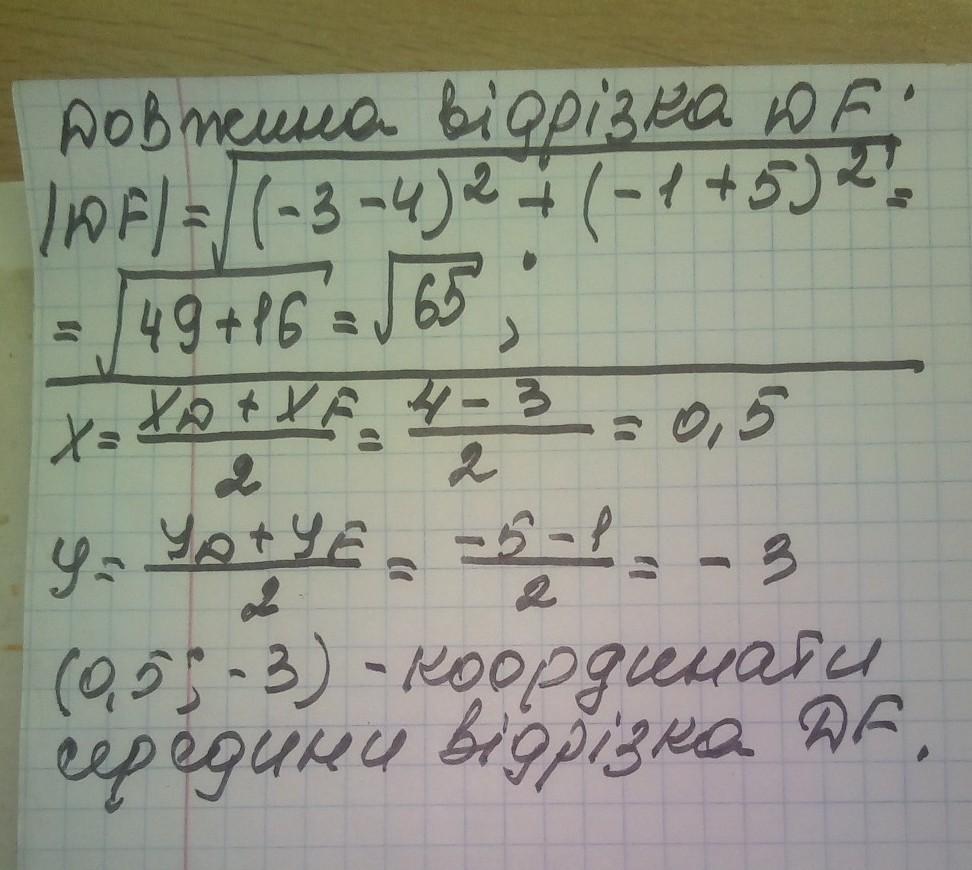 Довжина відрізка DF:
|DF| = √((-3-4)² + (-1+5)²) =
= √(49+16) = √65 ;
x = (x_D + x_F)/2 = (4-3)/2 = 0,5
y = (y_D + y_F)/2 = (-5-1)/2 = -3
(0,5; -3) - координати
середини відрізка DF.